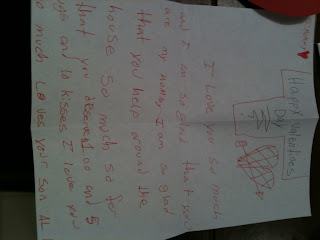 Happy Valentines
Day
I Love you so much
and I am so glad that you
are my mommy I am so glad
that you help around the
house so much so for
that you deserve 1.00 and 5
ugs and 10 kisses I love you
o much Loves your son AL